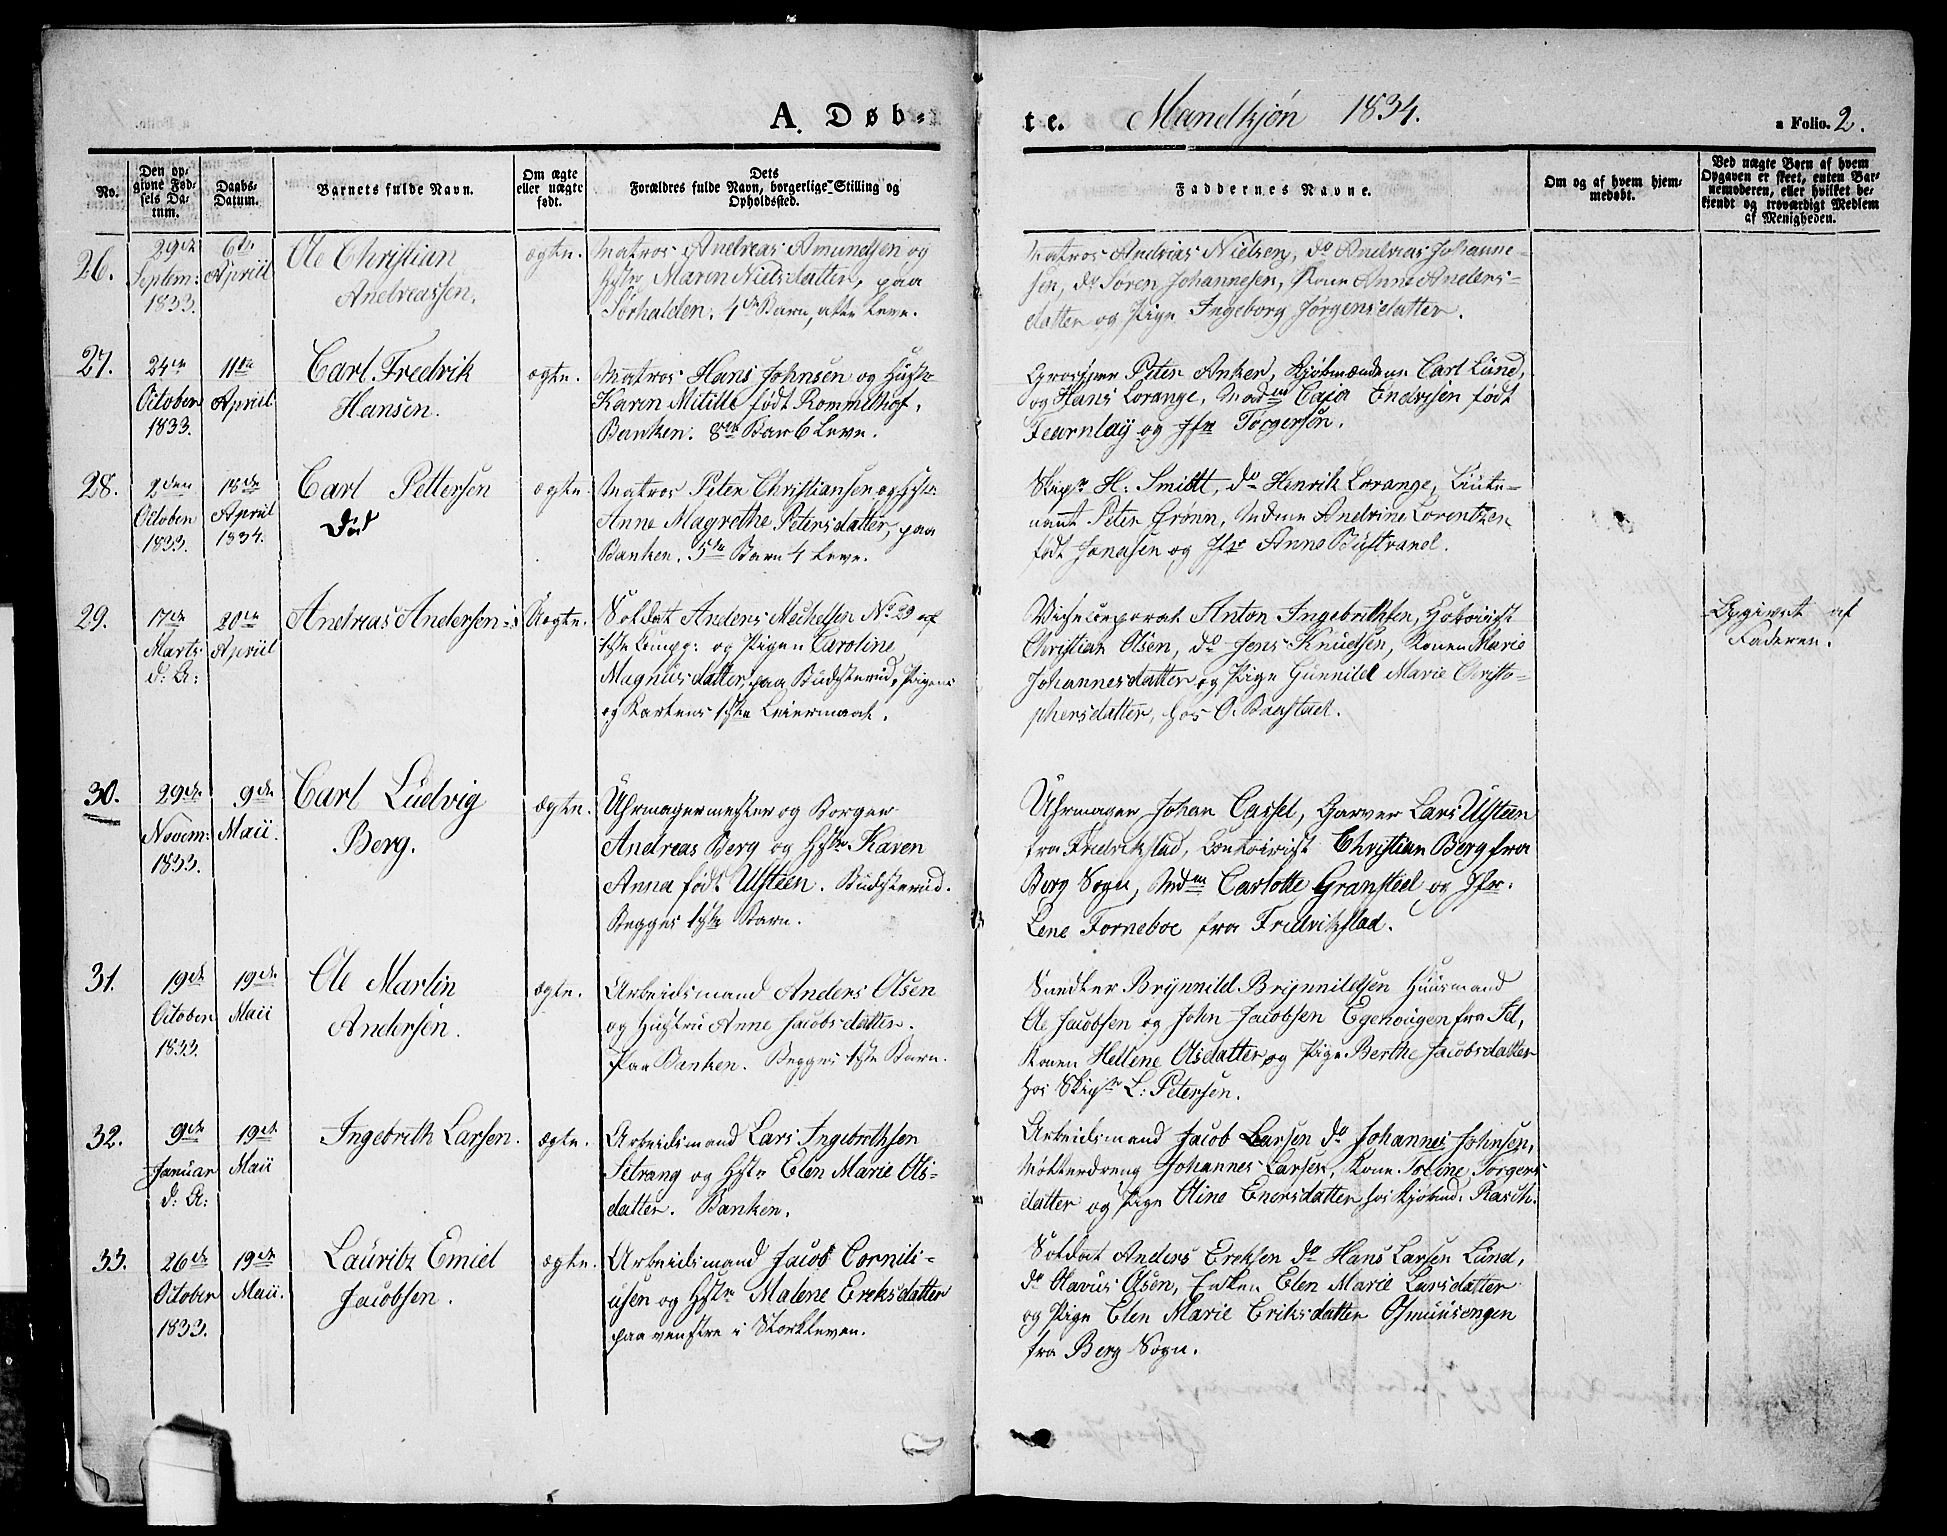 A. Døb-
te. Mandkjøn 1834.
a Folio. 2.
No.
Den op-
givne Fød-
sels Da-
tum.
Daabs-
Datum.
Barnets fulde Navn.
Om ægte
eller uægte
født.
Dets
Forældres fulde Navn, borgerlige Stilling og
Opholdssted.
Faddernes Navne.
Om og af hvem hjem-
medøbt.
Ved uægte Børn af hvem
Opgaven er skeet, enten Bar-
nemoderen, eller hvilket be-
kjendt og troværdigt Medlem
af Menigheden.
26.
29de
Septem:
1833.
6te
Apriil
Ole Christian
Andreassen.
ægte.
Matros Andreas Amundsen og
Hstr Maren Nielsdatter, paa
Sørhalden. 4de Barn, alle Leve.
Matros Andrias Nielsen, do Andreas Johanne-
sen, do Søren Johannesen, Kone Anne Anders-
datter og Pige Ingeborg Jørgensdatter.
27.
24de
October
1833.
11te
Apriil
Carl Fredrik
Hansen.
ægte.
Matros Hans Johnsen og Hustr
Karen Mitille født Rommelhof,
Banken. 8de Bar 6 Leve.
Grosserer Peter Anker, Kjøbmændene Carl Lund,
og Hans Lorange, Madm Caja Endresen født
Fearnlay og Jfr Torgersøn.
28.
2den
October
1833.
18de
April
1834.
Carl Pettersen
Død
ægte.
Matros Peter Christiansen og Hstr.
Anne Magrethe Petersdatter, paa
Banken. 5te Barn 4 Leve.
Skipr H. Smidt, do Henrik Lorange, Lieute-
nant Peter Grønn, Mdme Andrine Lorentzen
født Jonasen og Jfr Anne Bustrand.
29.
17de
Marts
d: A:
20de
Apriil
Andreas Andersen
Uægte.
Soldat Anders Mechelsen No 29 af
1ste Comp: og Pigen Caroline
Magnusdatter, paa Budsterud, Pigens
og Karlens 1ste Leiermaal.
Vicecorporal Anton Ingebrithsen, Hoboist
Christian Olsen, do Jens Knudsen, Konen Marie
Johannesdatter og Pige Gunnild Marie Christo-
phersdatter, hos O. Bastad.
Opgivet af
Faderen.
30.
29de
Novem:
1833.
9de
Maii.
Carl Ludvig
Berg.
ægte.
Uhrmagermester og Borger
Andreas Berg og Hstr Karen
Anna født Ulsteen. Budsterud.
Begges 1ste Barn.
Uhrmager Johan Cassel, Garver Lars Ulsteen
fra Fredrikstad, Contoirist Christian Berg fra
Berg Sogn, Mdm Carlotte Gransteel og Jfr.
Lene Forneboe fra Fredrikstad.
31.
19de
October
1833.
19de
Maii
Ole Martin
Andersen.
ægte.
Arbeidsmand Anders Olsen
og Hustru Anne Jacobsdatter.
paa Banken. Begges 1ste Barn.
Snedker Brynnild Brynnildsen Huusmand
Ole Jacobsen og John Jacobsen Egehougen fra Id,
Konen Hellene Olsdatter og Pige Berthe Jacobsdatter
hos Skipr L: Petersen.
32.
9de
Januar
d: A:
19de
Maii
Ingebrith Larsen.
ægte.
Arbeidsmand Lars Ingebrethsen
Selrang og Hstr Elen Marie Ols-
datter. Banken.
Arbeidsmand Jacob Larsen do Johannes Johnsen,
Møllerdreng Johannes Larsen, Kone Toline Torgers
datter og Pige Oline Enersdatter hos Kjøbmd. Rasch.
33.
26de
October
1833.
19de
Maii.
Lauritz Emiel
Jacobsen.
ægte.
Arbeidsmand Jacob Cornili-
usen og Hstr Malene Ereksdatter
paa venstre i Storkleven.
Soldat Anders Ereksen do Hans Larsen Lund,
do Olavus Olsen, Enken Elen Marie Larsdatter
og Pige Elen Marie Eriksdatter Osmunsengen
fra Berg Sogn.